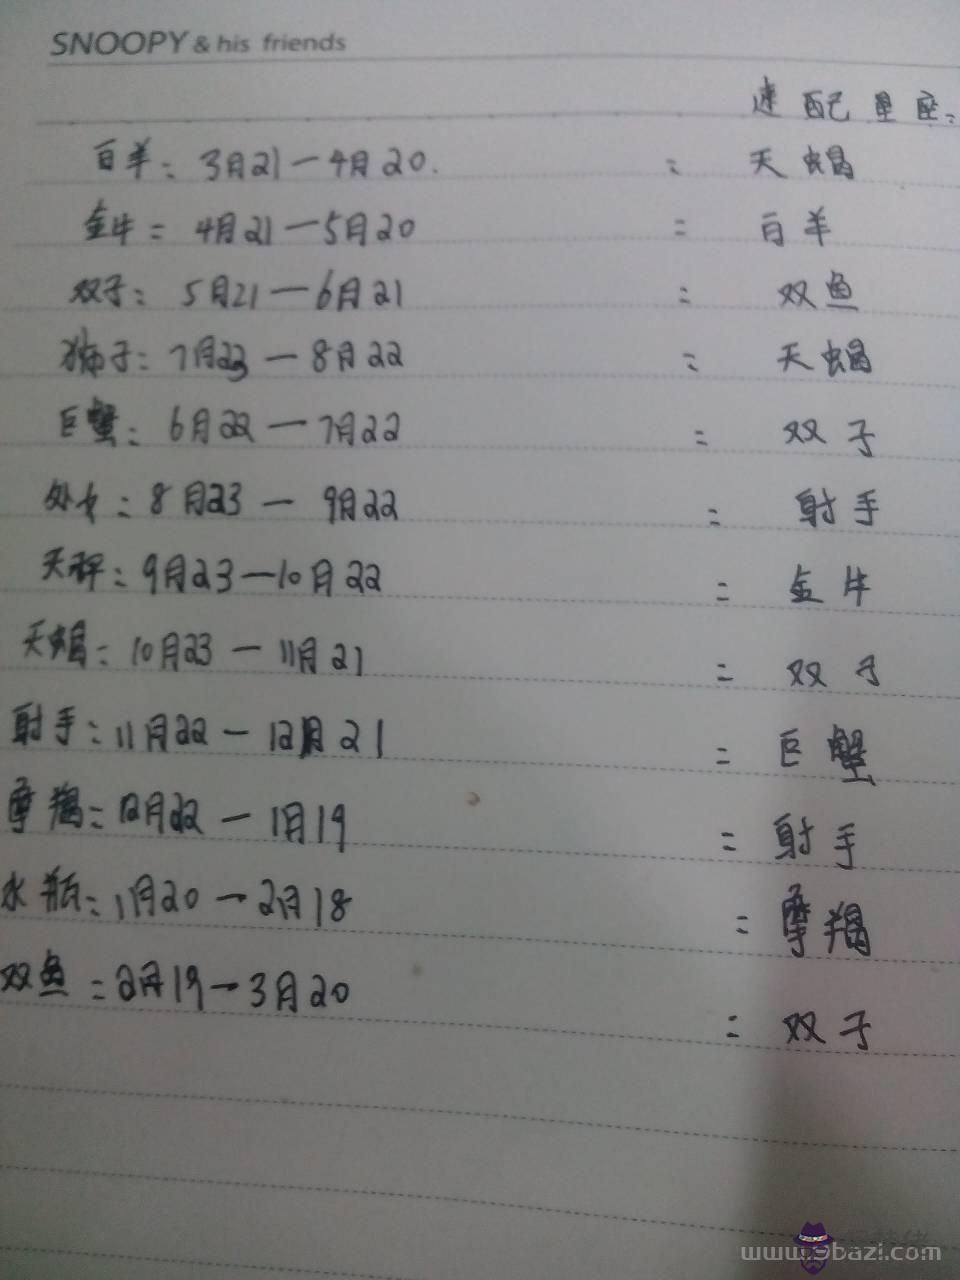 SNOOPY & his friends
速配星座:
白羊: 3月21—4月20. : 天蝎
金牛: 4月21—5月20 : 白羊
双子: 5月21—6月21 : 双鱼
狮子: 7月23—8月22 : 天蝎
巨蟹: 6月22—7月22 : 双子
处女: 8月23—9月22 : 射手
天秤: 9月23—10月22 : 金牛
天蝎: 10月23—11月21 : 双子
射手: 11月22—12月21 : 巨蟹
摩羯: 12月22—1月19 : 射手
水瓶: 1月20—2月18 : 摩羯
双鱼: 2月19—3月20 : 双子
www.9bazi.com